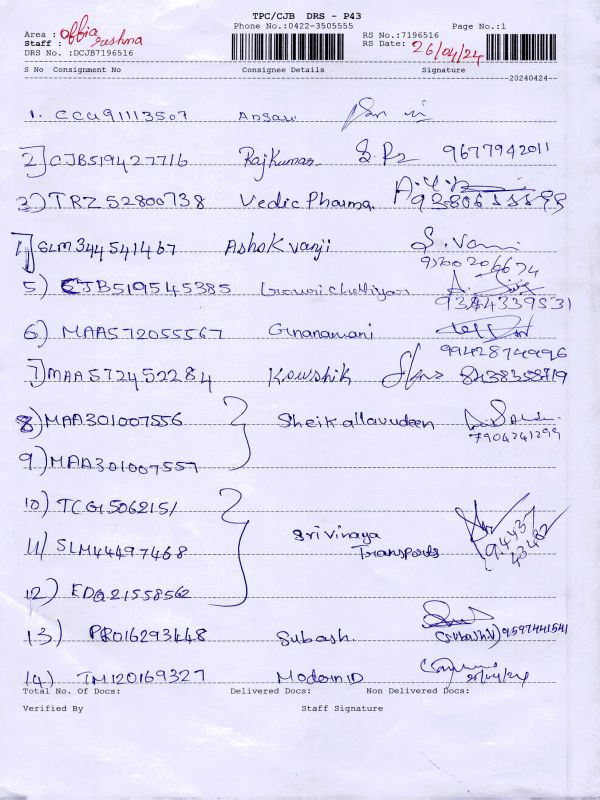 TPC/CJB DRS - P43
Phone No.:0422-3505555 Page No.:1
Area : offia
Staff : reshma
RS No.:7196516
RS Date: 26/04/24
DRS No. :DCJB7196516
S No Consignment No Consignee Details Signature
20240424--
1. CCU91113507 Ansari
2] CJB519427716 Rajkumar 9677942011
3) TRZ52800738 Vedic Pharma
4] SLM344541467 Ashok vanji S. Vanji
9360206674
5) CJB519545385 Gowri chettiyar
9344339531
6) MAA572055567 Gnanamani
9942874996
7) MAA572452284 Kowshik 8438358719
8) MAA301007556 Sheik allavudeen
7904241299
9) MAA301007557
10) TCG1506215/
11) SLM44497468 Srivinaya Transports 94437 43482
12) EDQ21558562
13) PRO16293448 Subash. (Subash.V) 9597441541
14) TM120169327 Modern ID 26/04/24
Total No. Of Docs: Delivered Docs: Non Delivered Docs:
Verified By Staff Signature